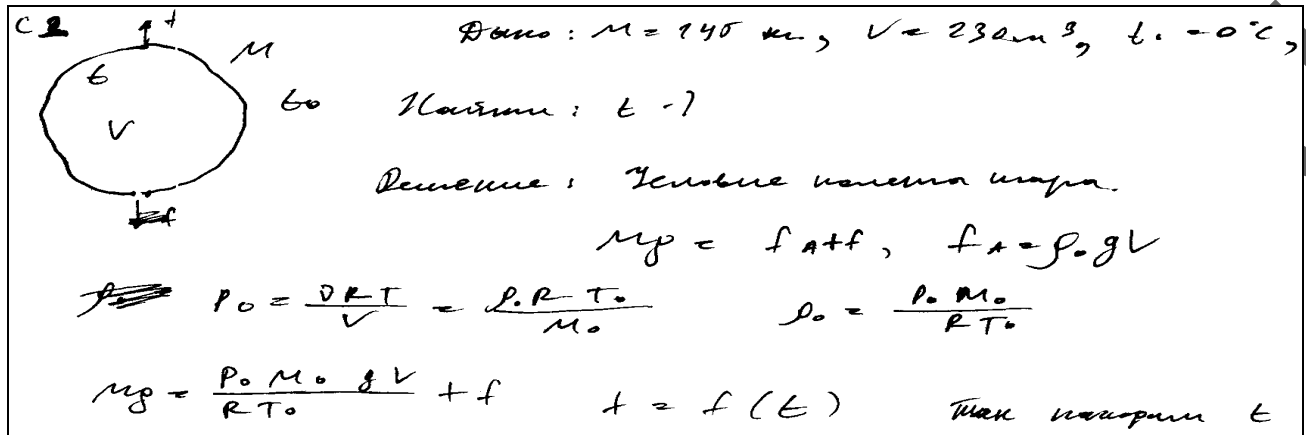 С2
f
M
t
t₀
V
f
Дано: M = 145 кг, V = 230 м³, t₀ = 0°C,
Найти: t - ?
Решение: Условие полета шара.
Mg = f_A + f, f_A = ρ₀gV
P₀ = νRT/V = ρ₀RT₀/M₀ ρ₀ = P₀M₀/RT₀
Mg = P₀M₀gV/RT₀ + f f = f(t) Так находим t